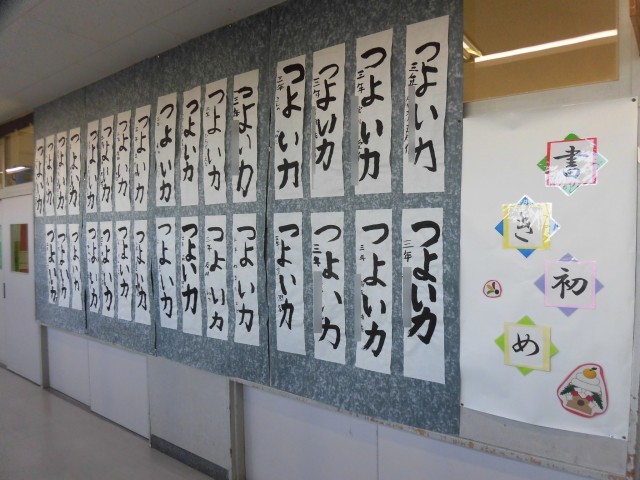 書き初め
つよい力
三年
つよい力
三年
つよい力
三年
つよい力
三年
つよい力
三年
つよい力
つよい力
つよい力
つよい力
つよい力
つよい力
つよい力
つよい力
つよい力
つよい力
つよい力
つよい力
三年
つよい力
三年
つよい力
三年
つよい力
つよい力
つよい力
三年
つよい力
つよい力
つよい力
つよい力
つよい力
つよい力
つよい力
つよい力
つよい力